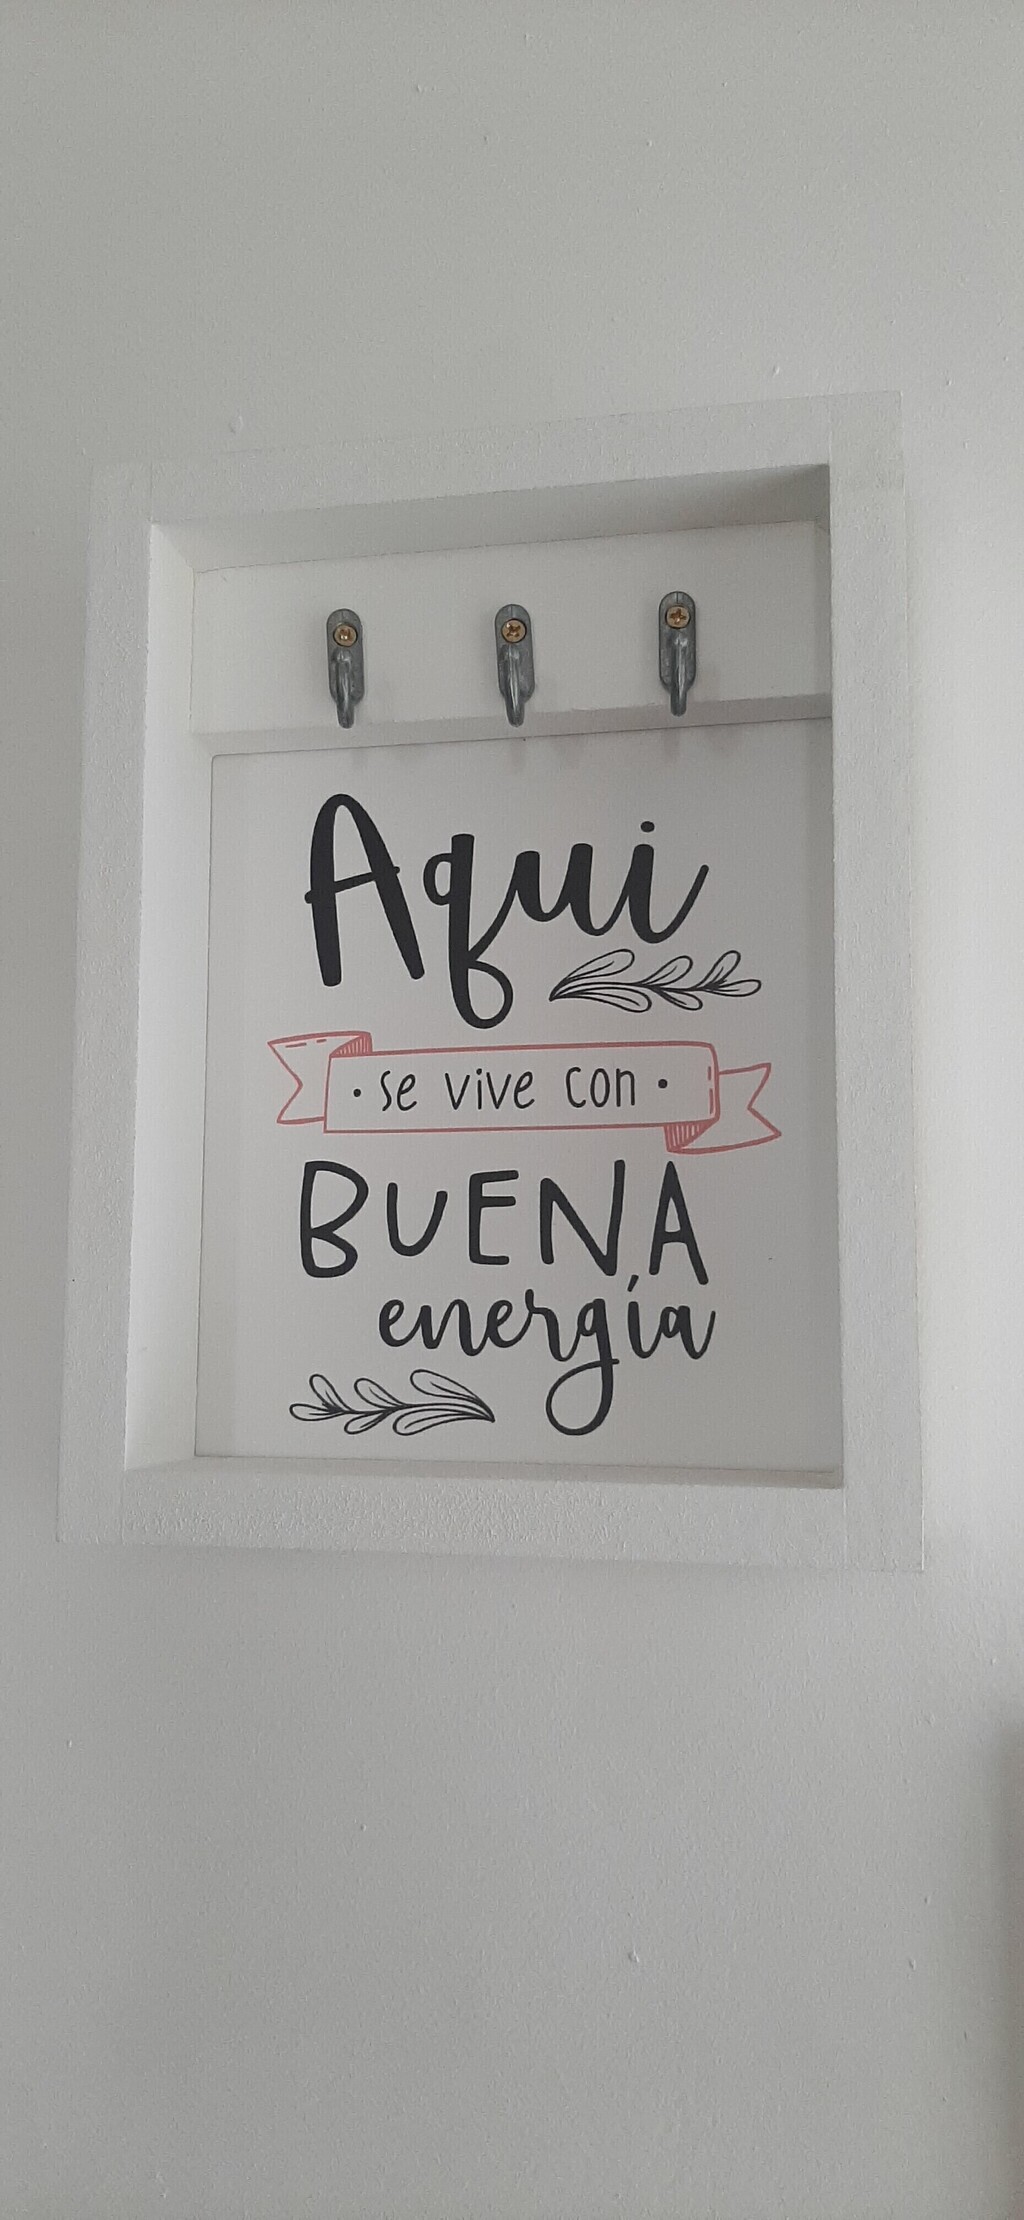 Aqui
· se vive con ·
BUENA
energía